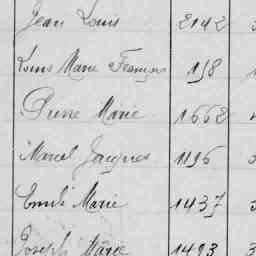 Jean Louis 2142
Louis Marie François 158
Pierre Marie 1662
Marcel Jacques 1196
Emile Marie 1437
Joseph Marie 1493